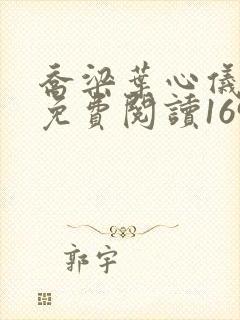 喬梁葉心儀
免費閱讀169
郭宇